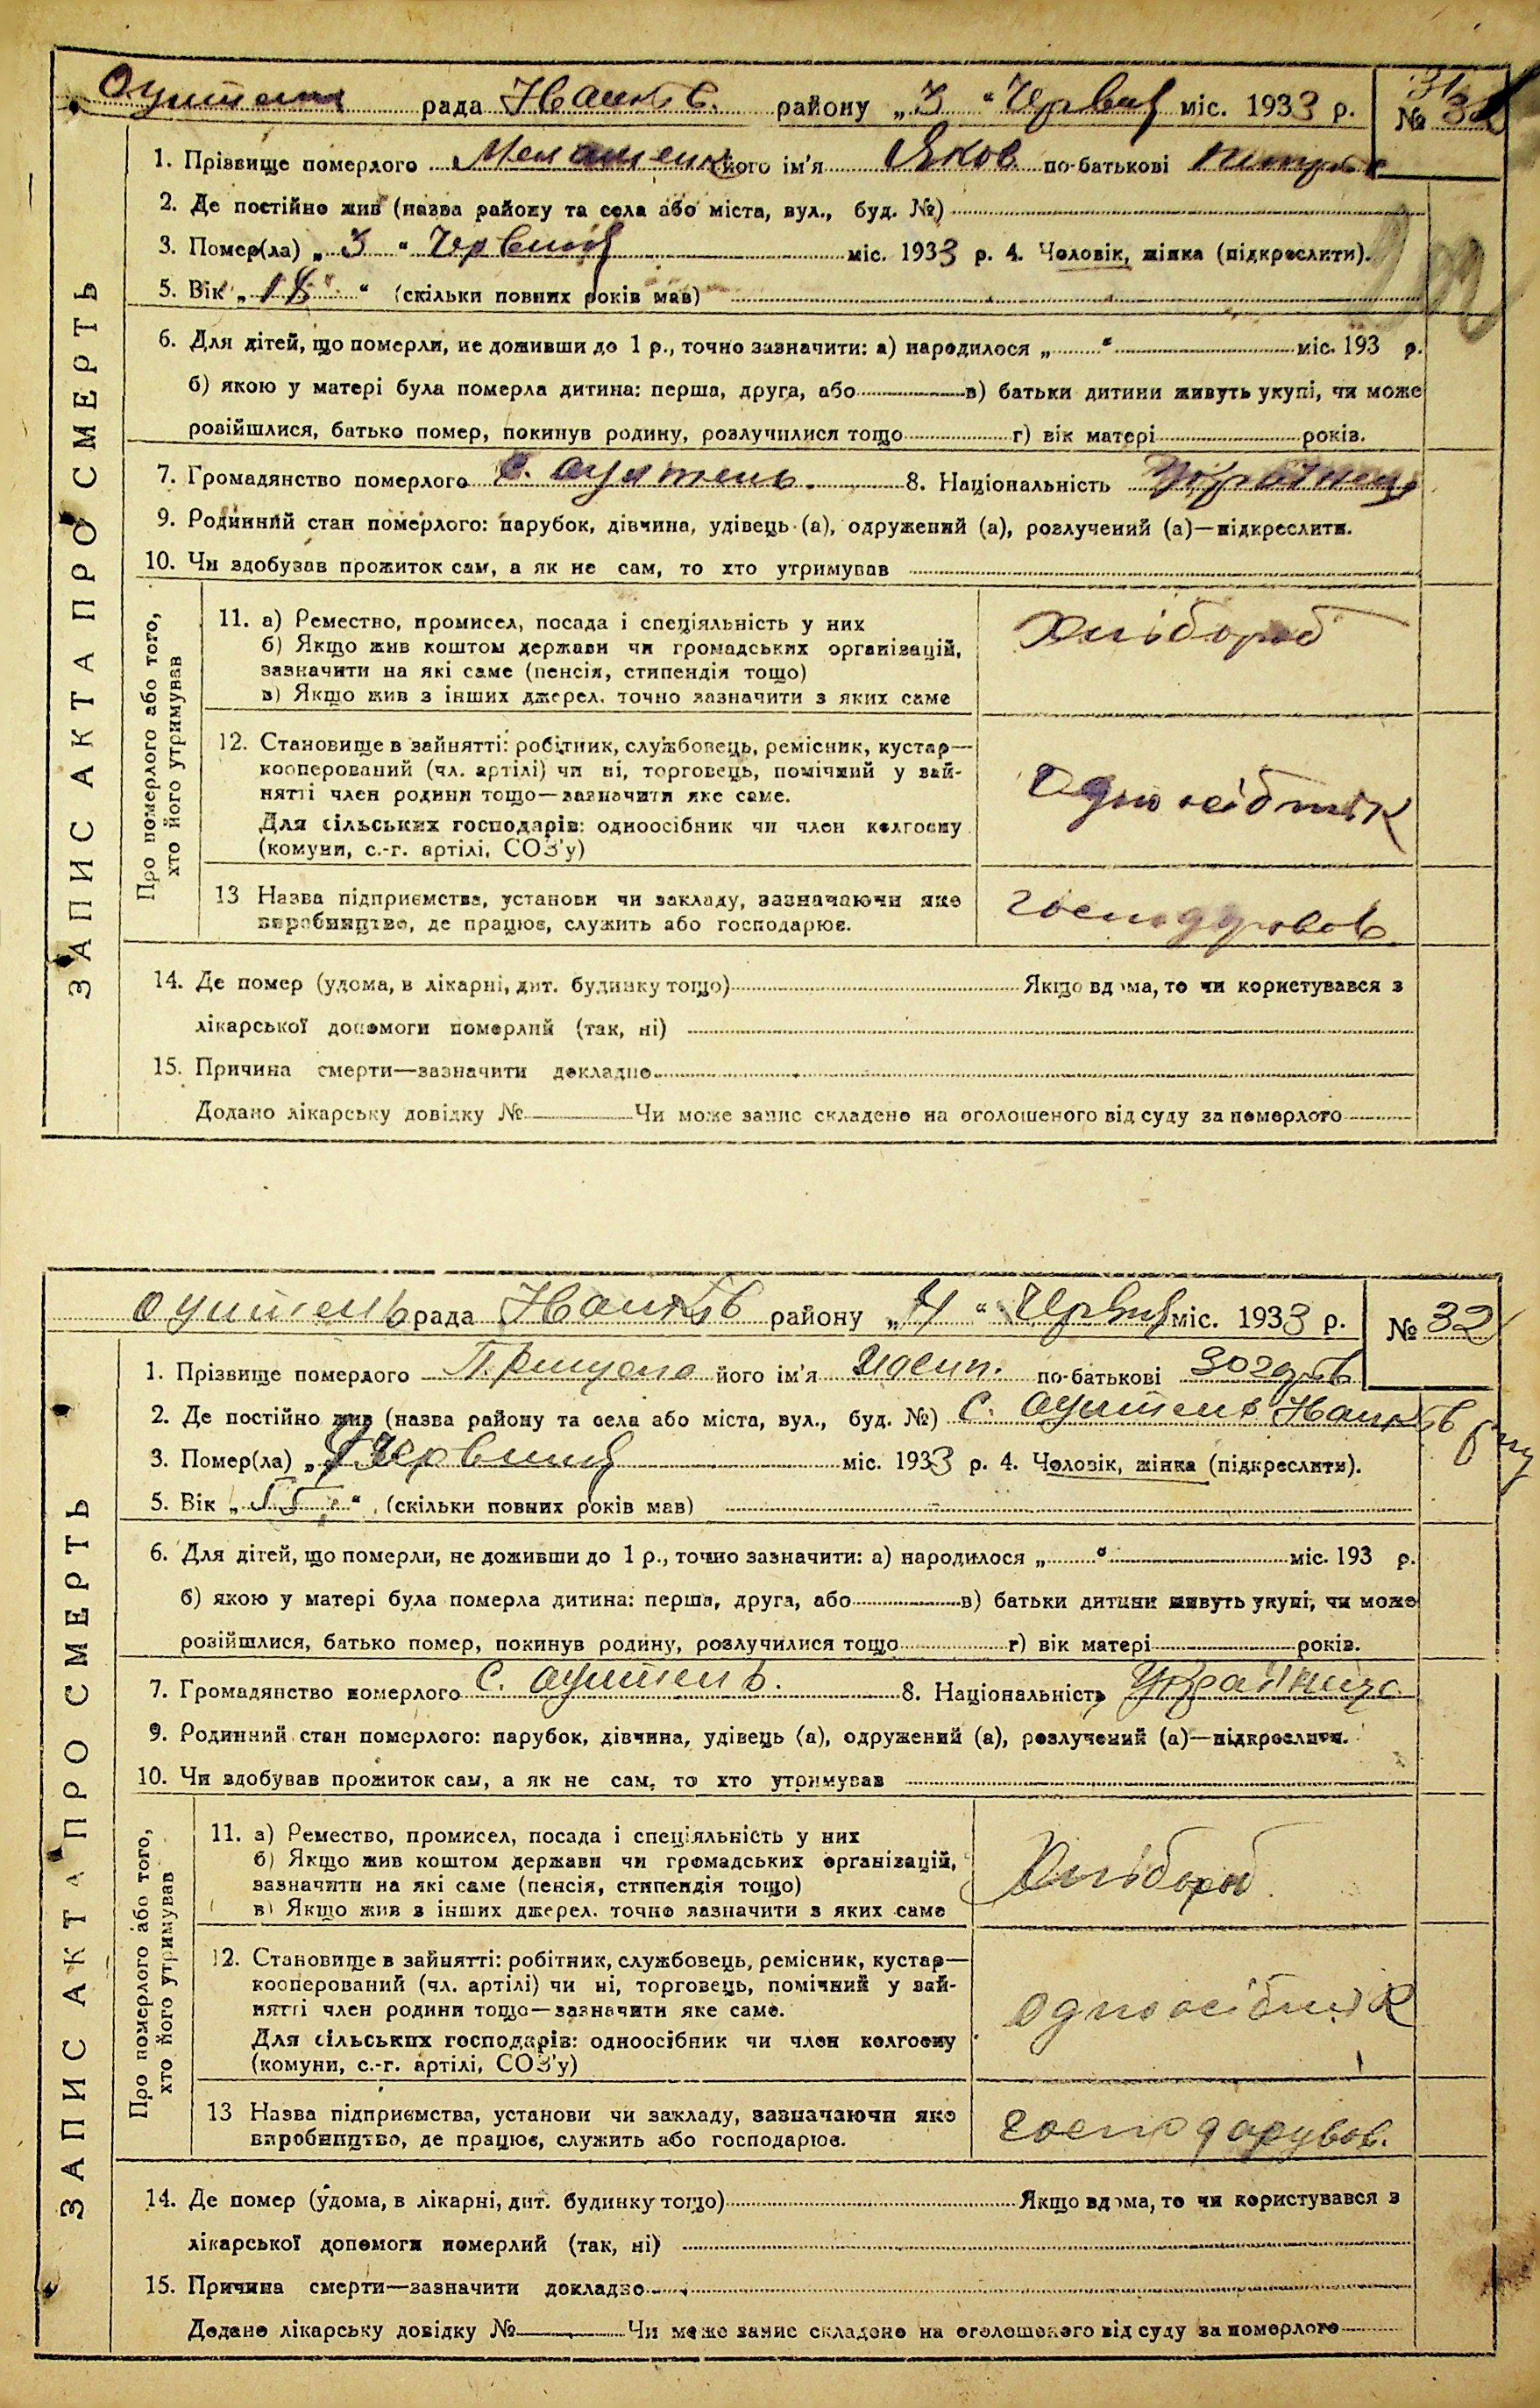 рада района „ 3 “ Червня міс. 1933 р. № 31
1. Прізвище померлого його ім'я Яков по-батькові
2. Де постійно жив (назва району та села або міста, вул., буд. №)
3. Помер(ла) „ 3 “ Червня міс. 1933 р. 4. Чоловік, жінка (підкреслити).
5. Вік „ 18 “ (скільки повних років мав)
6. Для дітей, що померли, не доживши до 1 р., точно зазначити: а) народилося „ “ міс. 193 р.
б) якою у матері була померла дитина: перша, друга, або в) батьки дитини живуть укупі, чи може
розійшлися, батько помер, покинув родину, розлучилися тощо г) вік матері років.
7. Громадянство померлого с. 8. Національність
9. Родинний стан померлого: парубок, дівчина, удівець (а), одружений (а), розлучений (а)—підкреслити.
10. Чи здобував прожиток сам, а як не сам, то хто утримував
ЗАПИС АКТА ПРО СМЕРТЬ
Про померлого або того,
хто його утримував
11. а) Ремество, промисел, посада і спеціяльність у них
б) Якщо жив коштом держави чи громадських організацій,
зазначити на які саме (пенсія, стипендія тощо)
в) Якщо жив з інших джерел, точно зазначити з яких саме
Хлібороб
12. Становище в зайнятті: робітник, службовець, ремісник, кустар—
кооперований (чл. артілі) чи ні, торговець, помічний у зай-
нятті член родини тощо—зазначити яке саме.
Для сільських господарів: одноосібник чи член колгоспу
(комуни, с.-г. артілі, СОЗ'у)
Одноосібник
13 Назва підприємства, установи чи закладу, зазначаючи яке
виробництво, де працює, служить або господарює.
14. Де помер (удома, в лікарні, дит. будинку тощо) Якщо вдома, то чи користувався з
лікарської допомоги померлий (так, ні)
15. Причина смерти—зазначити докладно
Додано лікарську довідку № Чи може запис складено на оголошеного від суду за померлого
рада району „ 4 “ Червня міс. 1933 р. № 32
1. Прізвище померлого його ім'я по-батькові
2. Де постійно жив (назва району та села або міста, вул., буд. №) с.
3. Помер(ла) „ Червня міс. 1933 р. 4. Чоловік, жінка (підкреслити).
5. Вік „ 55 “ (скільки повних років мав)
6. Для дітей, що померли, не доживши до 1 р., точно зазначити: а) народилося „ “ міс. 193 р.
б) якою у матері була померла дитина: перша, друга, або в) батьки дитини живуть укупі, чи може
розійшлися, батько помер, покинув родину, розлучилися тощо г) вік матері років.
7. Громадянство померлого с. 8. Національність
9. Родинний стан померлого: парубок, дівчина, удівець (а), одружений (а), розлучений (а)—підкреслити.
10. Чи здобував прожиток сам, а як не сам, то хто утримував
ЗАПИС АКТА ПРО СМЕРТЬ
Про померлого або того,
хто його утримував
11. а) Ремество, промисел, посада і спеціяльність у них
б) Якщо жив коштом держави чи громадських організацій,
зазначити на які саме (пенсія, стипендія тощо)
в) Якщо жив з інших джерел, точно зазначити з яких саме
Хлібороб
12. Становище в зайнятті: робітник, службовець, ремісник, кустар—
кооперований (чл. артілі) чи ні, торговець, помічний у зай-
нятті член родини тощо—зазначити яке саме.
Для сільських господарів: одноосібник чи член колгоспу
(комуни, с.-г. артілі, СОЗ'у)
одноосібник
13 Назва підприємства, установи чи закладу, зазначаючи яке
виробництво, де працює, служить або господарює.
господарував.
14. Де помер (удома, в лікарні, дит. будинку тощо) Якщо вдома, то чи користувався з
лікарської допомоги померлий (так, ні)
15. Причина смерти—зазначити докладно
Додано лікарську довідку № Чи може запис складено на оголошеного від суду за померлого